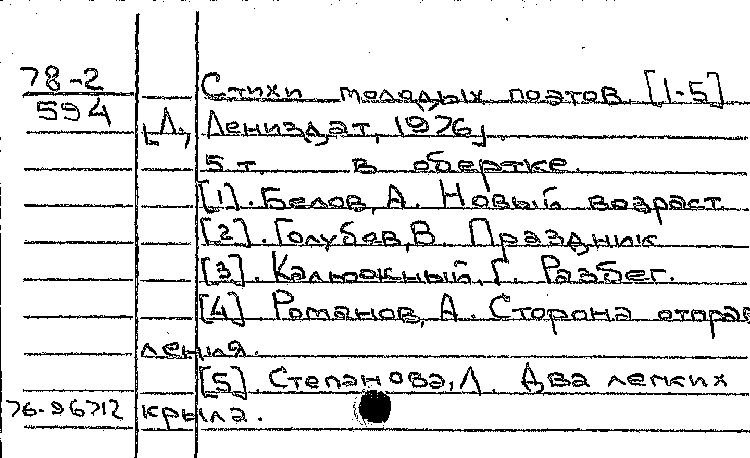 78-2 Стихи молодых поэтов [1-5]
594 [Л., Лениздат, 1976]
5 т. в обертке.
[1]. Белов, А. Новый возраст
[2]. Голубев, В. Праздник
[3]. Калюжный, Г. Разбег.
[4] Романов, А. Сторона отправ
ления.
[5]. Степанова, Л. Два легких
76-96712 крыла.